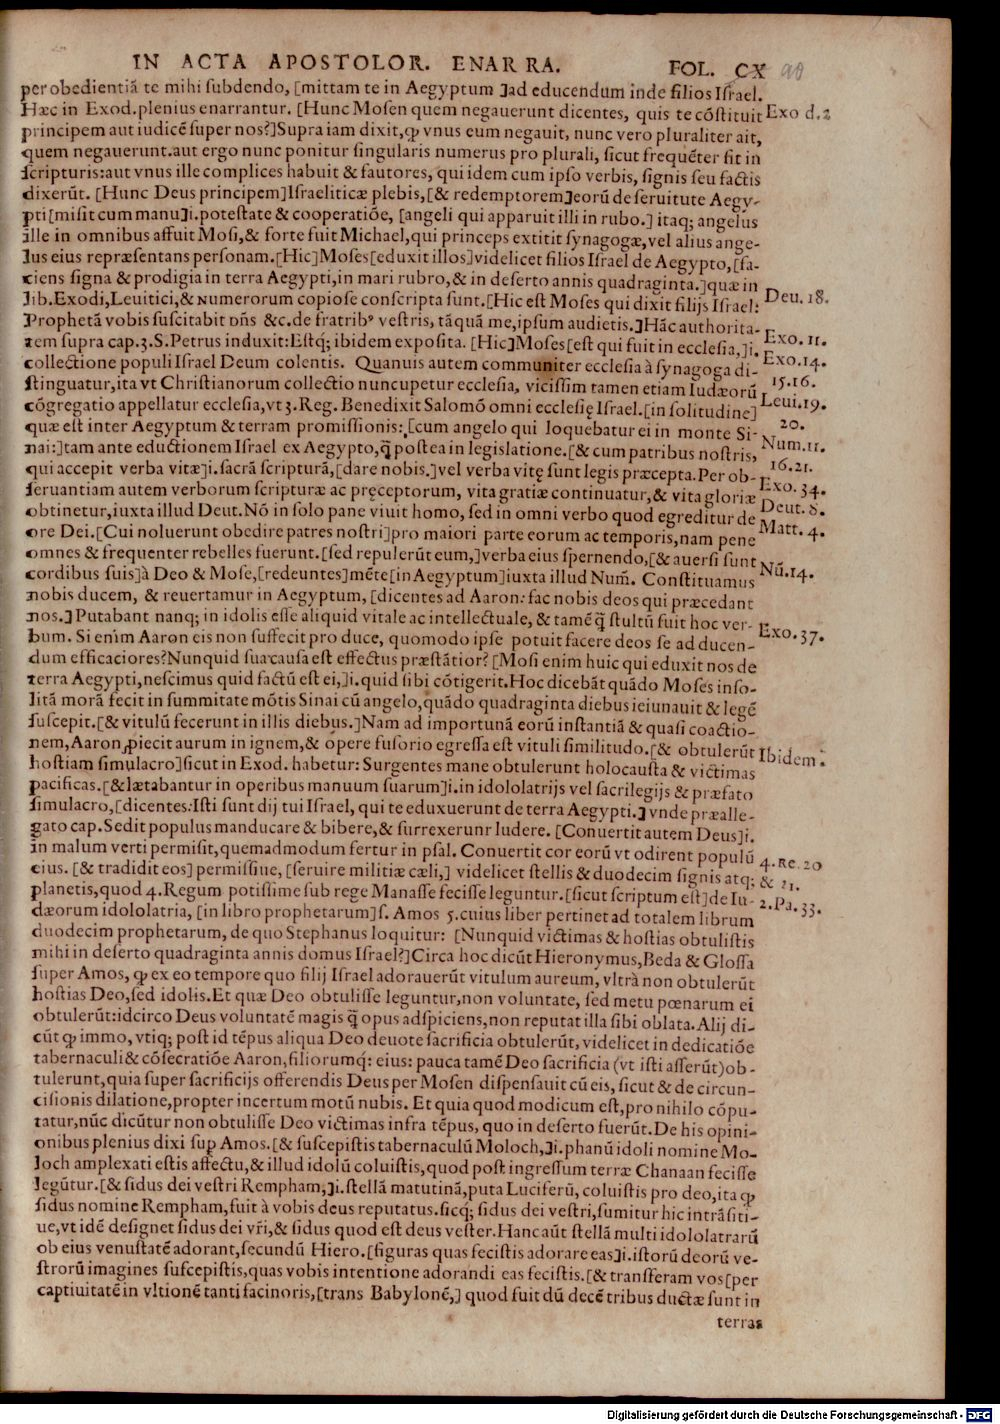 IN ACTA APOSTOLOR. ENARRA. FOL. CX 90
per obedientiā te mihi subdendo, [mittam te in Aegyptum ]ad educendum inde filios Israel.
Hæc in Exod.plenius enarrantur. [Hunc Mosen quem negauerunt dicentes, quis te cōstituit Exo d.2
principem aut iudicē super nos?]Supra iam dixit,ꝙ vnus eum negauit, nunc vero pluraliter ait,
quem negauerunt.aut ergo nunc ponitur singularis numerus pro plurali, sicut frequēter fit in
scripturis:aut vnus ille complices habuit & fautores, qui idem cum ipso verbis, signis seu factis
dixerūt. [Hunc Deus principem]Israeliticæ plebis,[& redemptorem]eorū de seruitute Aegy-
pti[misit cum manu]i.potestate & cooperatiōe, [angeli qui apparuit illi in rubo.] itaq; angelus
ille in omnibus affuit Mosi,& forte fuit Michael,qui princeps extitit synagogæ,vel alius ange-
lus eius repræsentans personam.[Hic]Moses[eduxit illos]videlicet filios Israel de Aegypto,[fa-
ciens signa & prodigia in terra Aegypti,in mari rubro,& in deserto annis quadraginta.]quæ in
lib.Exodi,Leuitici,& Numerorum copiose conscripta sunt.[Hic est Moses qui dixit filijs Israel: Deu. 18.
Prophetā vobis suscitabit dñs &c.de fratribꝰ vestris, tāquā me,ipsum audietis.]Hāc authorita-
tem supra cap.3.S.Petrus induxit:Estq; ibidem exposita. [Hic]Moses[est qui fuit in ecclesia,]i. Exo. 11.
collectione populi Israel Deum colentis. Quanuis autem communiter ecclesia à synagoga di- Exo.14.
stinguatur,ita vt Christianorum collectio nuncupetur ecclesia, vicissim tamen etiam Iudæorū 15.16.
cōgregatio appellatur ecclesia,vt 3.Reg. Benedixit Salomō omni ecclesię Israel.[in solitudine] Leui.19.
quæ est inter Aegyptum & terram promissionis:[cum angelo qui loquebatur ei in monte Si- 20.
nai:]tam ante eductionem Israel ex Aegypto,q̄ postea in legislatione.[& cum patribus nostris, Num.11.
qui accepit verba vitæ]i.sacrā scripturā,[dare nobis.]vel verba vitę sunt legis præcepta.Per ob- 16.21.
seruantiam autem verborum scripturæ ac pręceptorum, vita gratiæ continuatur,& vita gloriæ Exo. 34.
obtinetur,iuxta illud Deut.Nō in solo pane viuit homo, sed in omni verbo quod egreditur de Deut. 8.
ore Dei.[Cui noluerunt obedire patres nostri]pro maiori parte eorum ac temporis,nam pene Matt. 4.
omnes & frequenter rebelles fuerunt.[sed repulerūt eum,]verba eius spernendo,[& auersi sunt
cordibus suis]à Deo & Mose,[redeuntes]mēte[in Aegyptum]iuxta illud Num̄. Constituamus Nū.14.
nobis ducem, & reuertamur in Aegyptum, [dicentes ad Aaron:fac nobis deos qui præcedant
nos.] Putabant nanq; in idolis esse aliquid vitale ac intellectuale, & tamē q̄ stultū fuit hoc ver-
bum. Si enim Aaron eis non suffecit pro duce, quomodo ipse potuit facere deos se ad ducen- Exo.37.
dum efficaciores?Nunquid sua causa est effectus præstātior? [Mosi enim huic qui eduxit nos de
terra Aegypti,nescimus quid factū est ei,]i.quid sibi cōtigerit.Hoc dicebāt quādo Moses inso-
litā morā fecit in summitate mōtis Sinai cū angelo,quādo quadraginta diebus ieiunauit & legē
suscepit.[& vitulū fecerunt in illis diebus.]Nam ad importunā eorū instantiā & quasi coactio-
nem,Aaron ꝓiecit aurum in ignem,& opere fusorio egressa est vituli similitudo.[& obtulerūt Ibidem.
hostiam simulacro]sicut in Exod. habetur: Surgentes mane obtulerunt holocausta & victimas
pacificas.[& lætabantur in operibus manuum suarum]i.in idololatrijs vel sacrilegijs & præfato
simulacro,[dicentes:Isti sunt dij tui Israel, qui te eduxuerunt de terra Aegypti.]vnde præalle-
gato cap.Sedit populus manducare & bibere,& surrexerunr ludere. [Conuertit autem Deus]i.
in malum verti permisit,quemadmodum fertur in psal. Conuertit cor eorū vt odirent populū
eius. [& tradidit eos] permissiue, [seruire militiæ cæli,] videlicet stellis & duodecim signis atq; 4.Re.20
planetis,quod 4.Regum potissime sub rege Manasse fecisse leguntur.[sicut scriptum est]de Iu- & 21.
dæorum idololatria, [in libro prophetarum]s. Amos 5.cuius liber pertinet ad totalem librum 2.Pa.33.
duodecim prophetarum, de quo Stephanus loquitur: [Nunquid victimas & hostias obtulistis
mihi in deserto quadraginta annis domus Israel?]Circa hoc dicūt Hieronymus,Beda & Glossa
super Amos, ꝙ ex eo tempore quo filij Israel adorauerūt vitulum aureum, vltrà non obtulerūt
hostias Deo,sed idolis.Et quæ Deo obtulisse leguntur,non voluntate, sed metu pœnarum ei
obtulerūt:idcirco Deus voluntatē magis q̄ opus adspiciens,non reputat illa sibi oblata.Alij di-
cūt ꝙ immo, vtiq; post id tēpus aliqua Deo deuote sacrificia obtulerūt, videlicet in dedicatiōe
tabernaculi & cōsecratiōe Aaron,filiorumq; eius: pauca tamē Deo sacrificia (vt isti asserūt)ob-
tulerunt,quia super sacrificijs offerendis Deus per Mosen dispensauit cū eis, sicut & de circun-
cisionis dilatione,propter incertum motū nubis. Et quia quod modicum est,pro nihilo cōpu-
tatur,nūc dicūtur non obtulisse Deo victimas infra tēpus, quo in deserto fuerūt.De his opini-
onibus plenius dixi sup Amos.[& suscepistis tabernaculū Moloch,]i.phanū idoli nomine Mo-
loch amplexati estis affectu,& illud idolū coluistis,quod post ingressum terræ Chanaan fecisse
legūtur.[& sidus dei vestri Rempham,]i.stellā matutinā,puta Luciferū, coluistis pro deo,ita ꝙ
sidus nomine Rempham,fuit à vobis deus reputatus.sicq; sidus dei vestri,sumitur hic intrāsiti-
ue,vt idē designet sidus dei vr̄i,& sidus quod est deus vester.Hanc aūt stellā multi idololatrarū
ob eius venustatē adorant,secundū Hiero.[figuras quas fecistis adorare eas]i.istorū deorū ve-
strorū imagines suscepistis,quas vobis intentione adorandi eas fecistis.[& transferam vos[per
captiuitatē in vltionē tanti facinoris,[trans Babylonē,] quod fuit dū decē tribus ductæ sunt in
terras
Digitalisierung gefördert durch die Deutsche Forschungsgemeinschaft - DFG